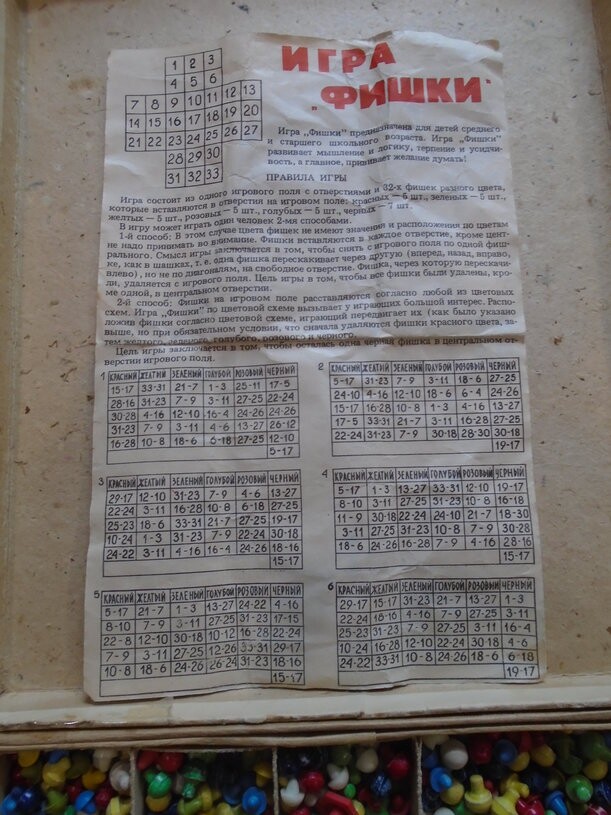 1 2 3
4 5 6
7 8 9 10 11 12 13
14 15 16 17 18 19 20
21 22 23 24 25 26 27
28 29 30
31 32 33
ИГРА
„ФИШКИ"
Игра „Фишки" предназначена для детей среднего
и старшего школьного возраста. Игра „Фишки"
развивает мышление и логику, терпение и усидчи-
вость, а главное, прививает желание думать!
ПРАВИЛА ИГРЫ
Игра состоит из одного игрового поля с отверстиями и 32-х фишек разного цвета,
которые вставляются в отверстия на игровом поле: красных — 5 шт., зеленых — 5 шт.,
желтых — 5 шт., розовых — 5 шт., голубых — 5 шт., черных — 7 шт.
В игру может играть один человек 2-мя способами.
1-й способ: В этом случае цвета фишек не имеют значения и расположения по цветам
не надо принимать во внимание. Фишки вставляются в каждое отверстие, кроме цент-
рального. Смысл игры заключается в том, чтобы снять с игрового поля по одной фиш-
ке, как в шашках, т. е. одна фишка перескакивает через другую (вперед, назад, вправо,
влево), но не по диагоналям, на свободное отверстие. Фишка, через которую перескачи-
ли, удаляется с игрового поля. Цель игры в том, чтобы все фишки были удалены, кро-
ме одной, в центральном отверстии.
2-й способ: Фишки на игровом поле расставляются согласно любой из цветовых
схем. Игра „Фишки" по цветовой схеме вызывает у играющих большой интерес. Распо-
ложив фишки согласно цветовой схеме, играющий передвигает их (как было указано
выше, но при обязательном условии, что сначала удаляются фишки красного цвета, за-
тем желтого, зеленого, голубого, розового и черного.
Цель игры заключается в том, чтобы осталась одна черная фишка в центральном от-
верстии игрового поля.
1
КРАСНЫЙ ЖЕЛТЫЙ ЗЕЛЕНЫЙ ГОЛУБОЙ РОЗОВЫЙ ЧЕРНЫЙ
15-17 33-31 21-7 1-3 25-11 17-5
28-16 31-23 3-11 7-9 27-25 22-24
30-28 4-16 12-10 16-4 24-26 24-26
31-23 7-9 3-11 4-6 13-27 26-12
16-28 10-8 18-6 6-18 27-25 12-10
5-17
2
КРАСНЫЙ ЖЕЛТЫЙ ЗЕЛЕНЫЙ ГОЛУБОЙ РОЗОВЫЙ ЧЕРНЫЙ
5-17 31-23 7-9 3-11 18-6 27-25
24-10 4-16 12-10 18-6 6-4 24-26
15-17 16-28 10-8 1-3 4-16 13-27
17-5 33-31 21-7 3-11 16-28 27-25
22-24 31-23 7-9 30-18 28-30 30-18
19-17
3
КРАСНЫЙ ЖЕЛТЫЙ ЗЕЛЕНЫЙ ГОЛУБОЙ РОЗОВЫЙ ЧЕРНЫЙ
29-17 12-10 31-23 7-9 4-6 13-27
22-24 3-11 16-28 10-8 6-18 27-25
25-23 18-6 33-31 21-7 27-25 19-17
10-24 1-3 31-23 7-9 22-24 16-18
24-22 3-11 4-16 16-4 24-26 18-16
15-17
4
КРАСНЫЙ ЖЕЛТЫЙ ЗЕЛЕНЫЙ ГОЛУБОЙ РОЗОВЫЙ ЧЕРНЫЙ
5-17 1-3 13-27 33-31 12-10 19-17
8-10 3-11 27-25 31-23 10-8 16-18
11-9 30-18 22-24 24-10 21-7 18-30
3-11 27-25 31-23 10-8 7-9 30-28
18-6 24-26 4-16 7-9 4-6 28-16
15-17
5
КРАСНЫЙ ЖЕЛТЫЙ ЗЕЛЕНЫЙ ГОЛУБОЙ РОЗОВЫЙ ЧЕРНЫЙ
5-17 21-7 1-3 13-27 24-22 4-16
8-10 7-9 3-11 27-25 31-23 17-15
22-8 12-10 30-18 10-12 16-28 22-24
7-9 3-11 27-25 12-26 33-31 29-17
10-8 18-6 24-26 26-24 31-23 18-16
15-17
6
КРАСНЫЙ ЖЕЛТЫЙ ЗЕЛЕНЫЙ ГОЛУБОЙ РОЗОВЫЙ ЧЕРНЫЙ
29-17 15-17 31-23 21-7 13-27 1-3
22-24 18-16 4-16 7-9 27-25 3-11
25-23 31-23 7-9 27-25 3-11 16-4
10-24 16-28 12-10 22-24 30-18 4-6
24-22 33-31 10-8 24-26 18-6 6-18
19-17